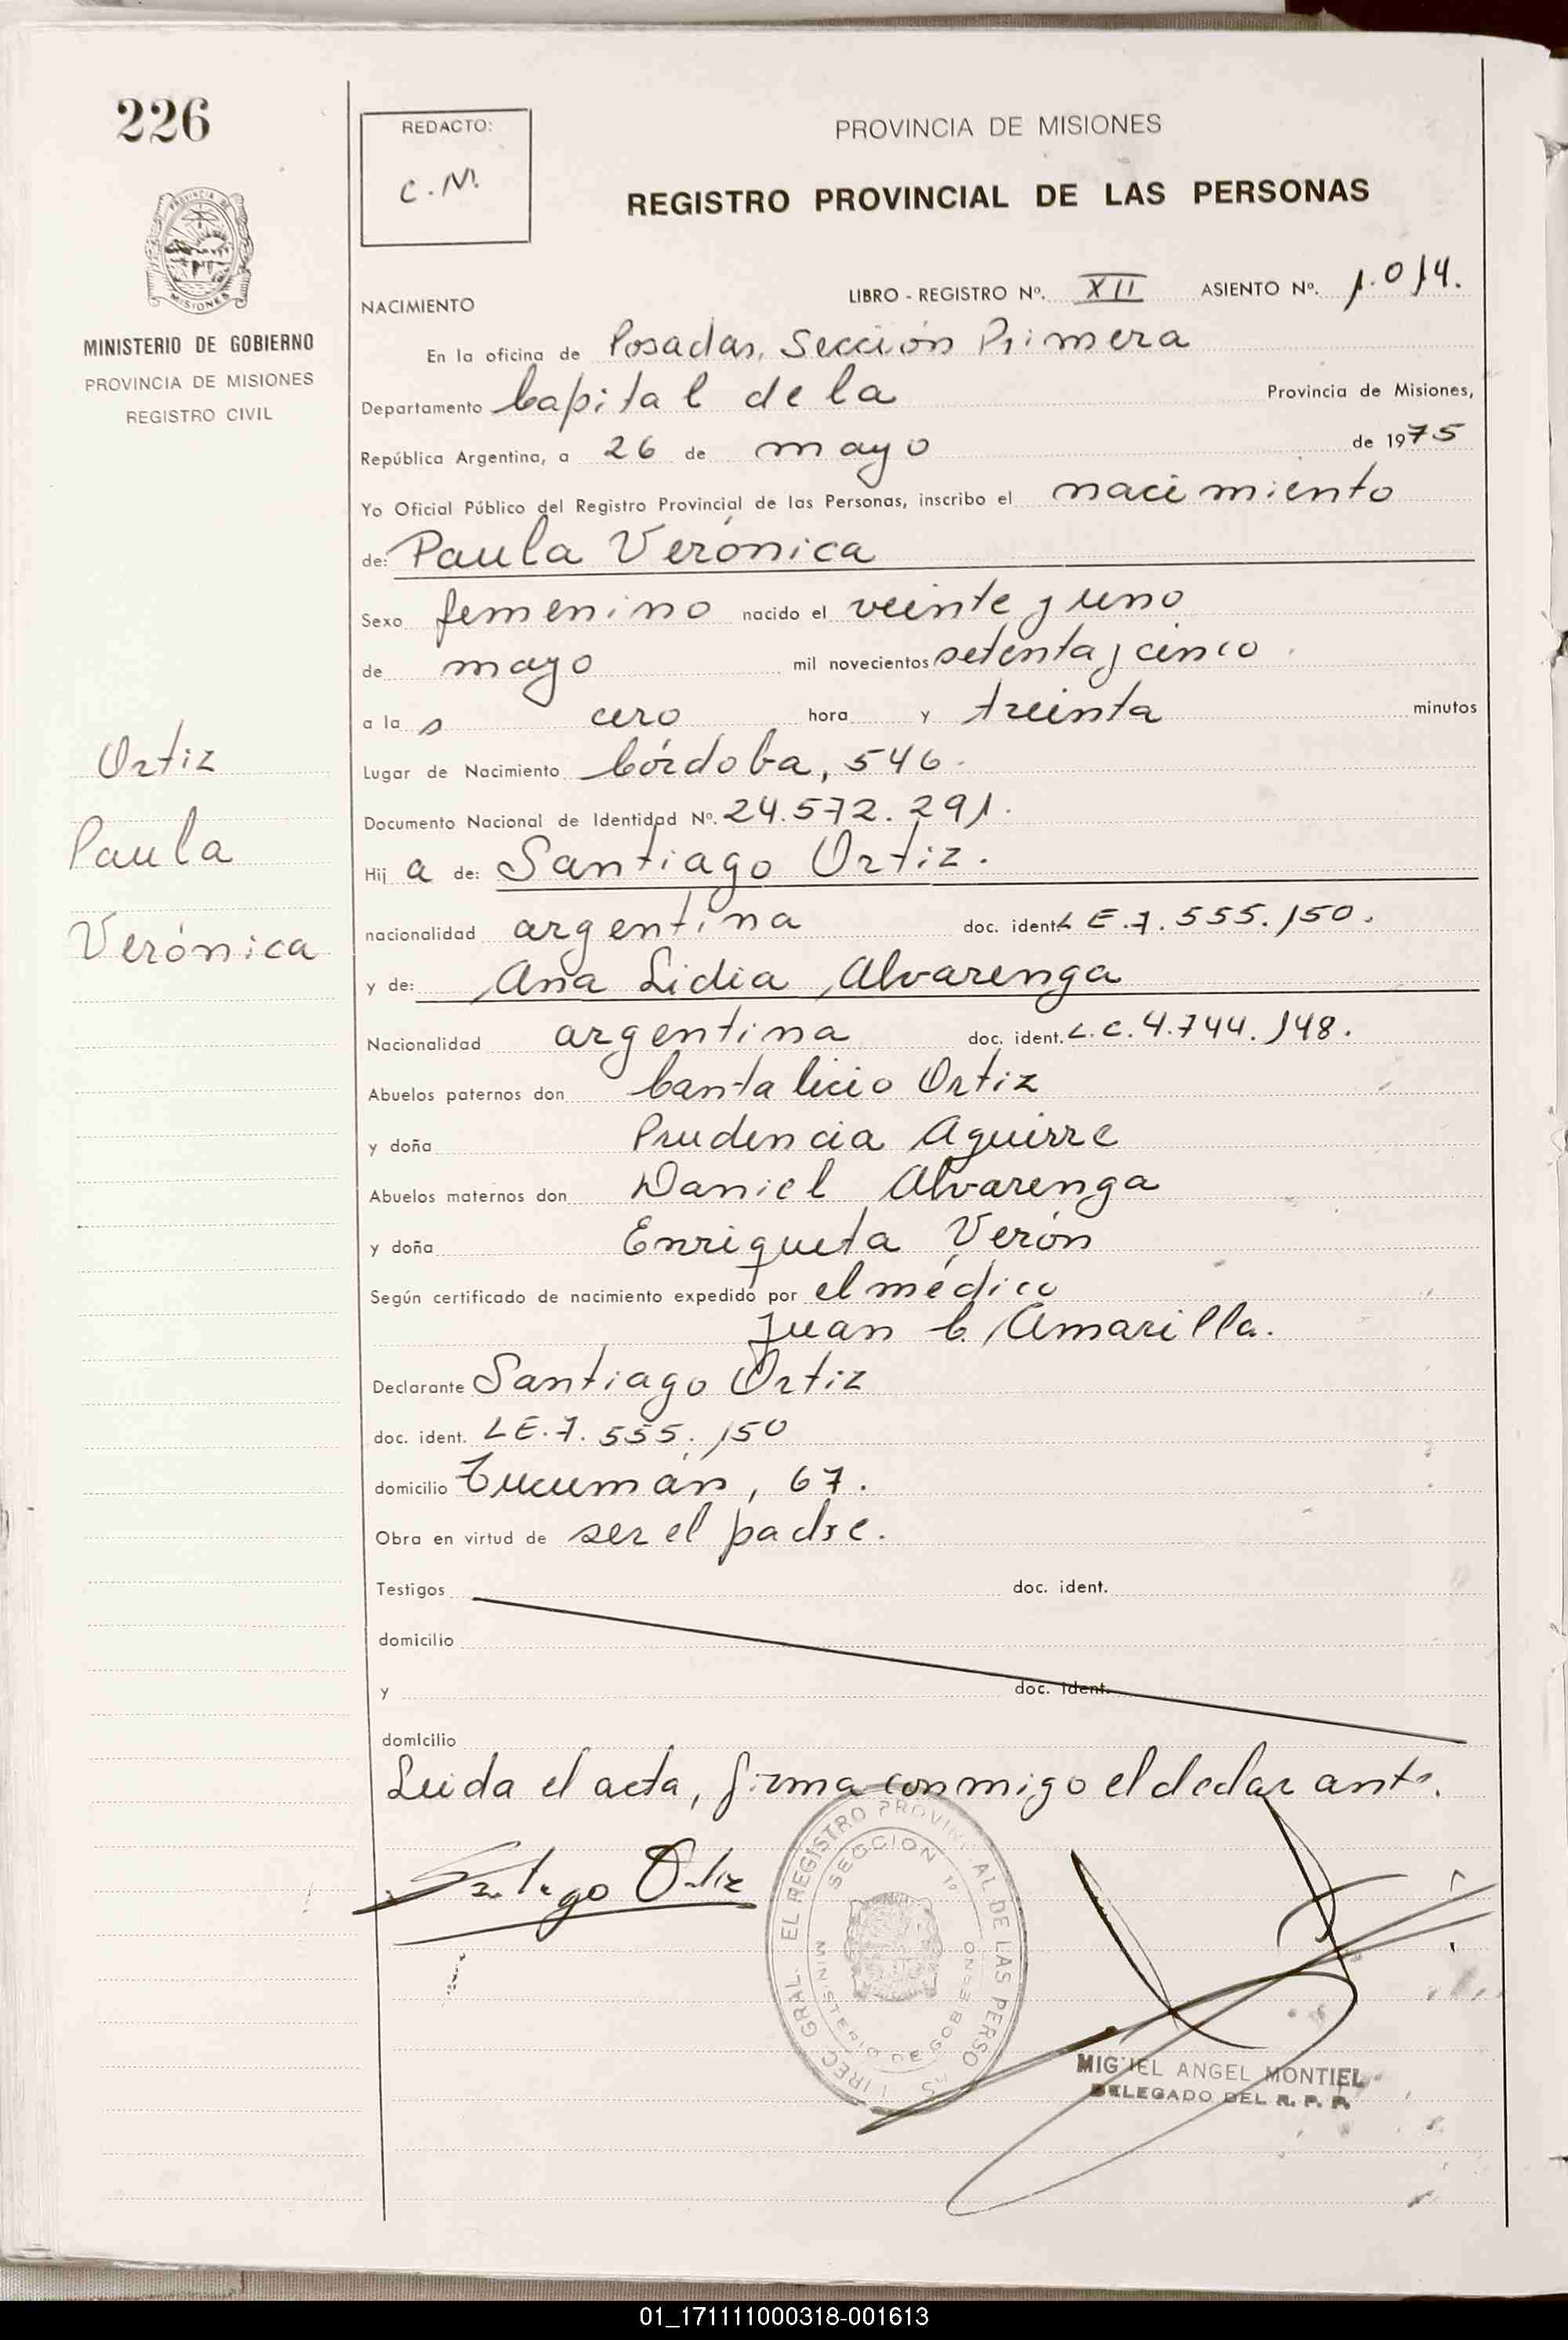 226
REDACTO:
C. M.
PROVINCIA DE MISIONES
REGISTRO PROVINCIAL DE LAS PERSONAS
MISIONES
MINISTERIO DE GOBIERNO
PROVINCIA DE MISIONES
REGISTRO CIVIL
NACIMIENTO
LIBRO - REGISTRO Nº. XII ASIENTO Nº. 1.014.
En la oficina de Posadas, Sección Primera
Departamento Capital de la Provincia de Misiones,
República Argentina, a 26 de mayo de 1975
Yo Oficial Público del Registro Provincial de las Personas, inscribo el nacimiento
de: Paula Verónica
Sexo femenino nacido el veinte y uno
de mayo mil novecientos setenta y cinco.
a la s cero hora y treinta minutos
Lugar de Nacimiento Córdoba, 546.
Documento Nacional de Identidad Nº. 24.572.291.
Hij a de: Santiago Ortiz.
nacionalidad argentina doc. ident. L E. 7. 555. 150.
y de: Ana Lidia Alvarenga
Nacionalidad argentina doc. ident. L. C. 4.744. 148.
Abuelos paternos don Cantalicio Ortiz
y doña Prudencia Aguirre
Abuelos maternos don Daniel Alvarenga
y doña Enriqueta Verón
Según certificado de nacimiento expedido por el médico
Juan C. Amarilla.
Declarante Santiago Ortiz
doc. ident. L E. 7. 555. 150
domicilio Tucumán, 67.
Obra en virtud de ser el padre.
Testigos doc. ident.
domicilio
y doc. ident.
domicilio
Leida el acta, firma conmigo el declarante.
Ortiz
Paula
Verónica
Santiago Ortiz
SECCION 1º
MINISTERIO DE GOBIERNO
MIGUEL ANGEL MONTIEL
DELEGADO DEL R. P. P.
01_171111000318-001613